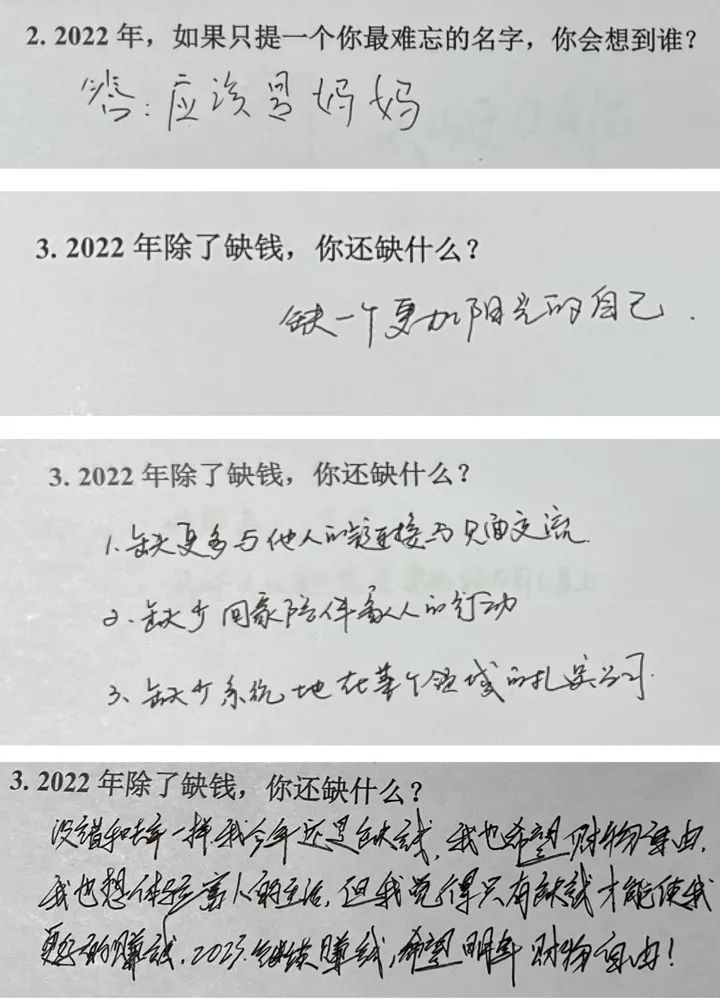 2. 2022 年，如果只提一个你最难忘的名字，你会想到谁？
答：应该是妈妈
3. 2022 年除了缺钱，你还缺什么？
缺一个更加阳光的自己．
3. 2022 年除了缺钱，你还缺什么？
1. 缺更多与他人的链连接与见面交流
2. 缺少回家陪伴家人的行动
3、缺少系统地在某个领域的扎实学习．
3. 2022 年除了缺钱，你还缺什么？
没错和去年一样，我今年还是缺钱，我也希望财物自由，
我也想体验富人的生活，但我觉得只有缺钱才能使我
更好的赚钱，2023，继续赚钱，希望明年财物自由！